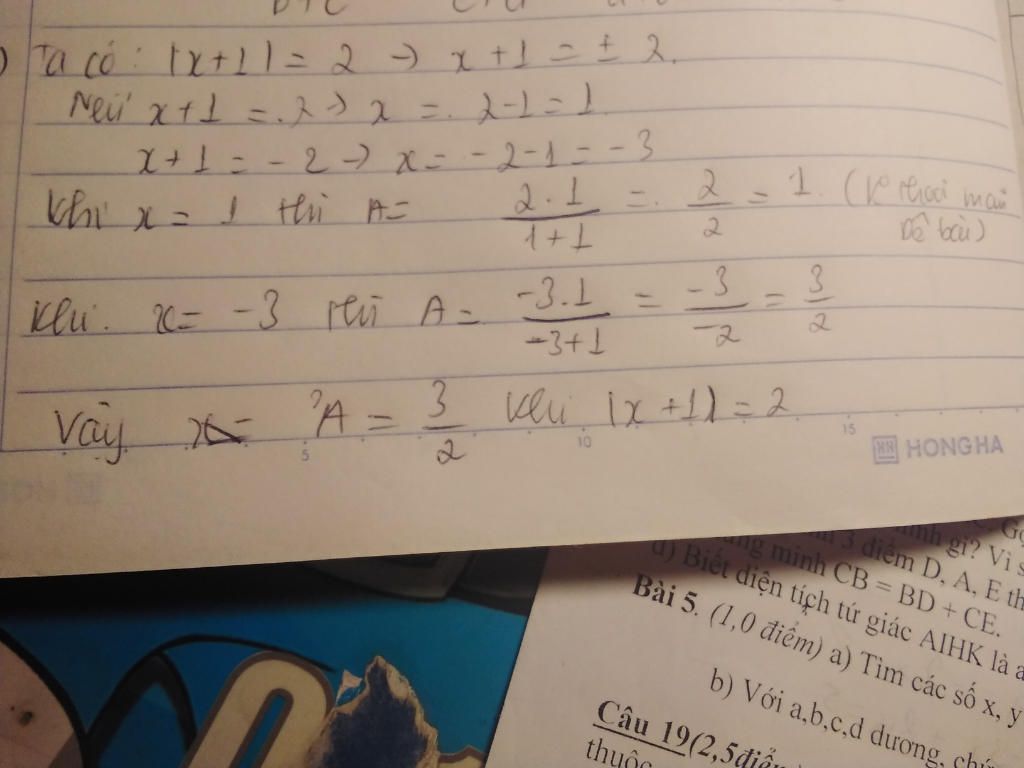 b+c c+a
) Ta có: |x+1| = 2 → x + 1 = ± 2.
Nếu x+1 = 2 → x = 2-1 = 1
x+1 = -2 → x = -2-1 = -3
Khi x = 1 thì A = 2.1/1+1 = 2/2 = 1. (K thoải mãn
Đề bài)
Khi x = -3 thì A = -3.1/-3+1 = -3/-2 = 3/2
Vậy A = 3/2 khi |x+1| = 2
5 10 15
HONG HA
3 điểm D, A, E th
minh CB = BD + CE.
d) Biết diện tích tứ giác AIHK là a
Bài 5. (1,0 điểm) a) Tìm các số x, y
b) Với a,b,c,d dương, chứ
Câu 19(2,5điểm
thuộc